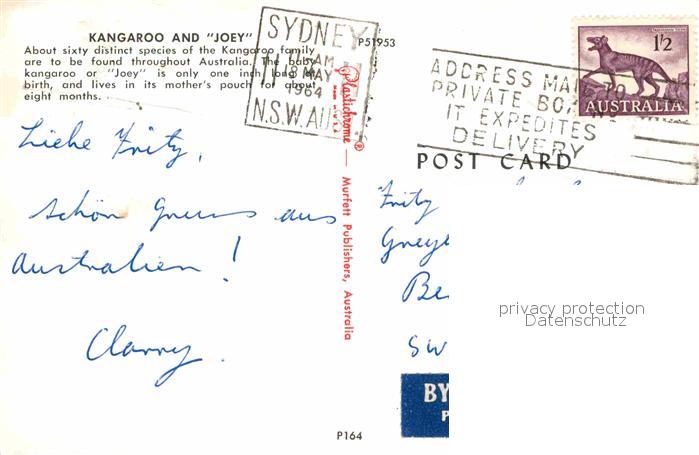 KANGAROO AND "JOEY"
About sixty distinct species of the Kangaroo family
are to be found throughout Australia. The baby
kangaroo or "Joey" is only one inch long at
birth, and lives in its mother's pouch for about
eight months.
SYDNEY
AM
18 MAY
1964
N.S.W. AU
P51953
1/2
AUSTRALIA
ADDRESS MAIL TO
PRIVATE BOX NO
IT EXPEDITES
DELIVERY
POST CARD
Plastichrome ® — Murfett Publishers, Australia
Liebe Fritz,
schön Gruss aus
Australien!
Clarry.
Fritz
Greye
Be
SW
privacy protection
Datenschutz
BY
P
P164